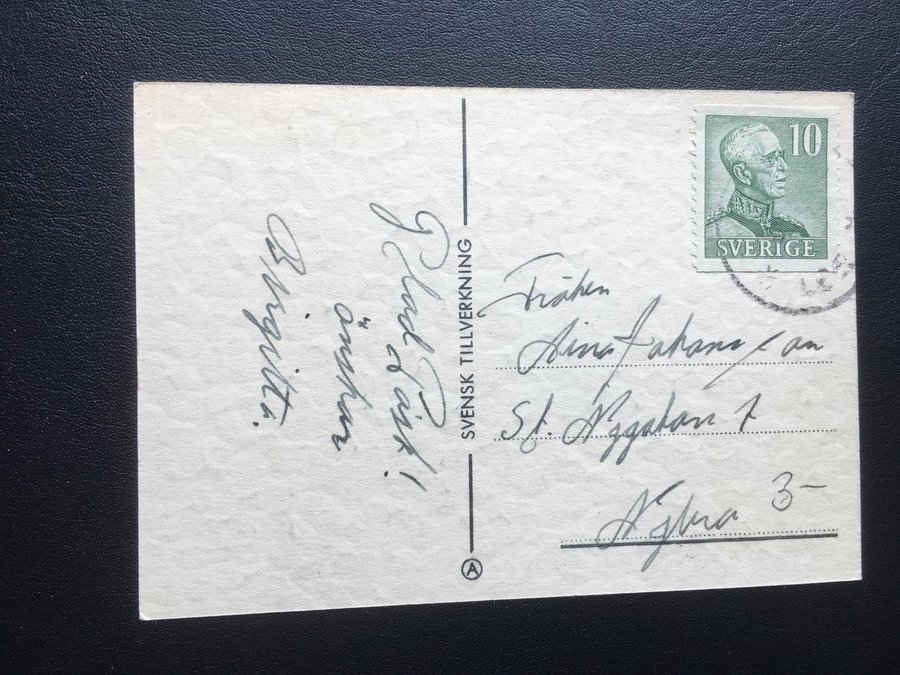 Glad Påsk!
önskar
Birgitta.
SVENSK TILLVERKNING
A
10
SVERIGE
Fröken
Aina Johansson
St. Nygatan 7
Nybro
3-